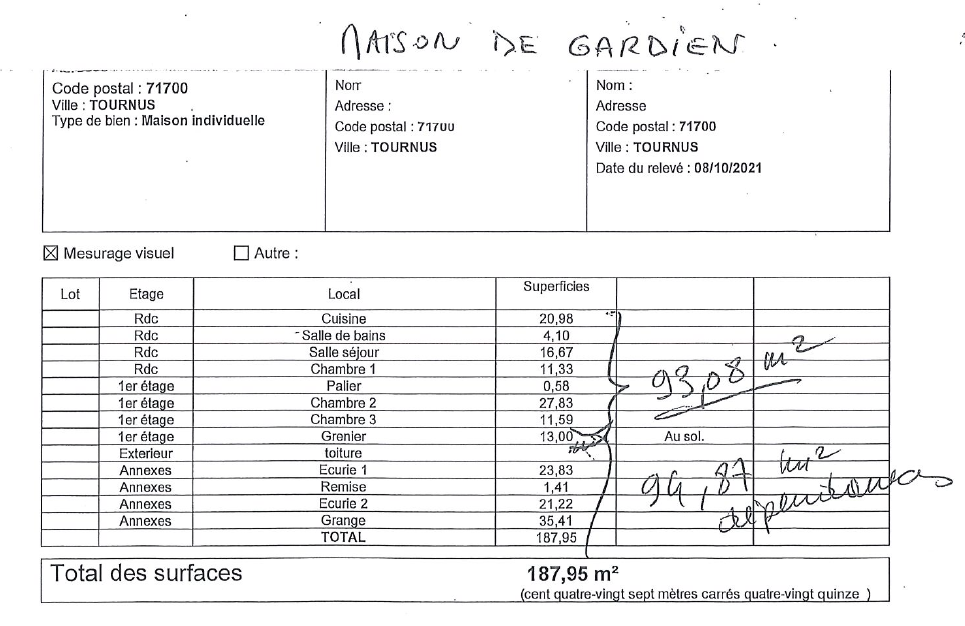 MAISON DE GARDIEN.
Code postal : 71700
Ville : TOURNUS
Type de bien : Maison individuelle
Nom
Adresse :
Code postal : 71700
Ville : TOURNUS
Nom :
Adresse
Code postal : 71700
Ville : TOURNUS
Date du relevé : 08/10/2021
☒ Mesurage visuel ☐ Autre :
Lot Etage Local Superficies
Rdc Cuisine 20,98
Rdc Salle de bains 4,10
Rdc Salle séjour 16,67
Rdc Chambre 1 11,33
1er étage Palier 0,58
1er étage Chambre 2 27,83
1er étage Chambre 3 11,59
1er étage Grenier 13,00 Au sol.
Exterieur toiture
Annexes Ecurie 1 23,83
Annexes Remise 1,41
Annexes Ecurie 2 21,22
Annexes Grange 35,41
TOTAL 187,95
93,08 m²
94,87 m²
dependances
Total des surfaces 187,95 m²
(cent quatre-vingt sept mètres carrés quatre-vingt quinze )